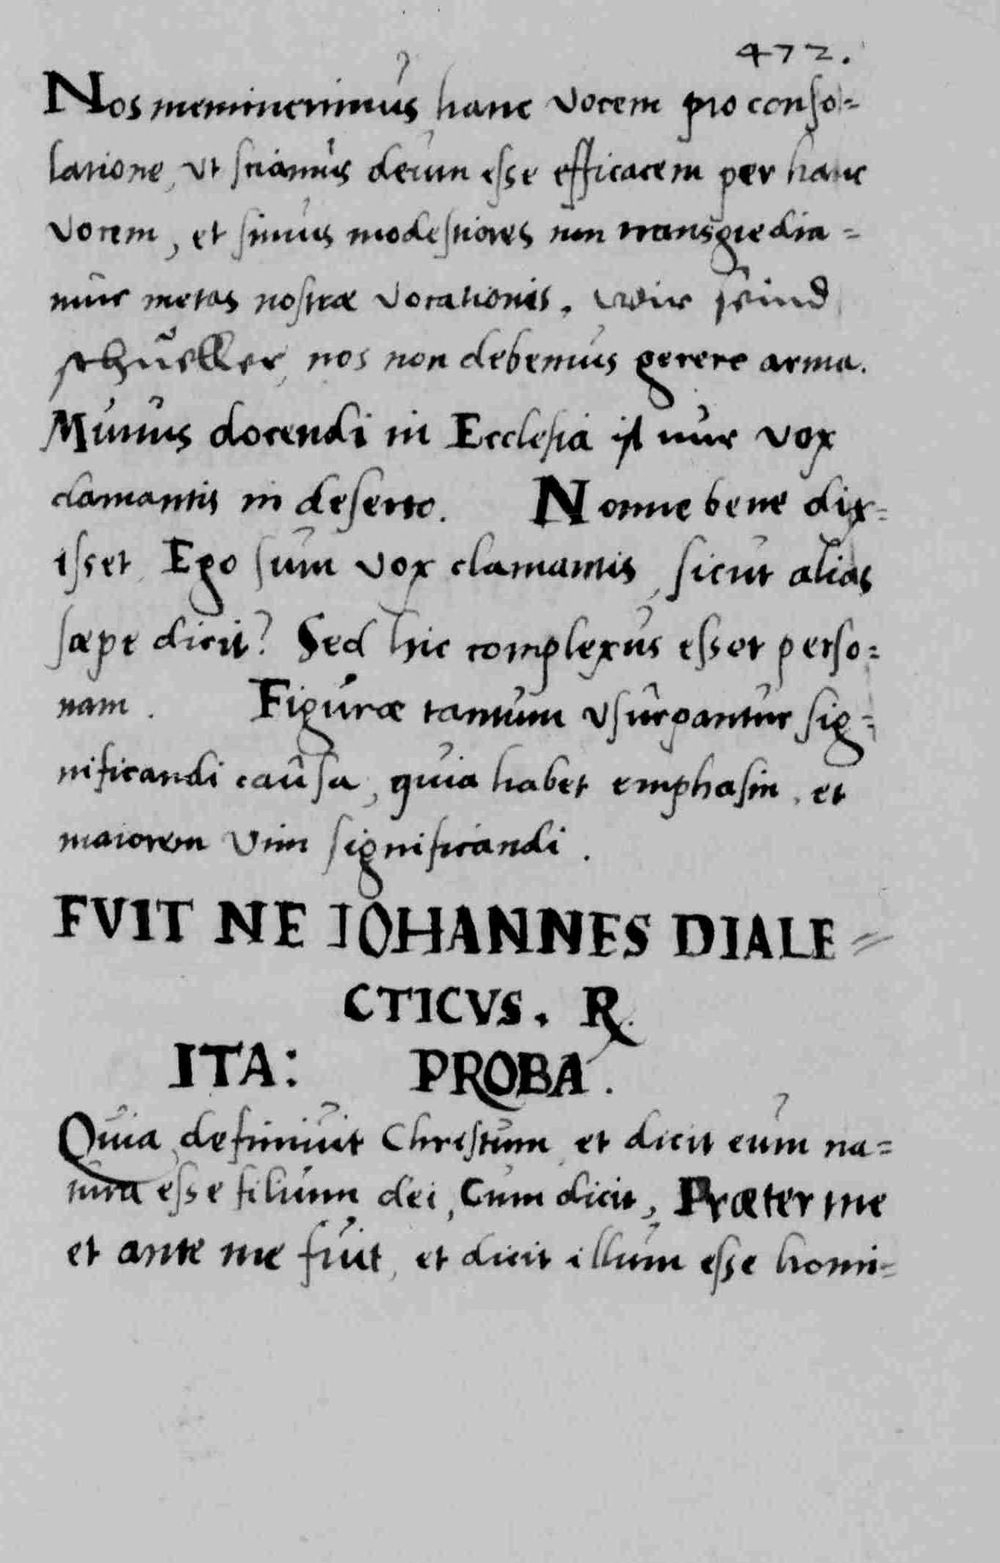 472.
Nos meminerimus hanc vocem pro conso=
latione, vt sciamus deum esse efficacem per hanc
vocem, et simus modestiores non transgredia=
mur metas nostræ vocationis. wir seind
schueller, nos non debemus gerere arma.
Munus docendi in Ecclesia ist nur vox
clamantis in deserto. Nonne bene dix=
isset Ego sum vox clamantis, sicut alias
sæpe dicit? Sed hic complexus esset perso=
nam. Figuræ tantum vsurpantur sig=
nificandi causa, quia habet emphasin, et
maiorem vim significandi.
FVIT NE IOHANNES DIALE=
CTICVS. R.
ITA: PROBA.
Quia definiuit Christum et dicit eum na=
tura esse filium dei, Cum dicit, Præter me
et ante me fuit, et dicit illum esse homi=